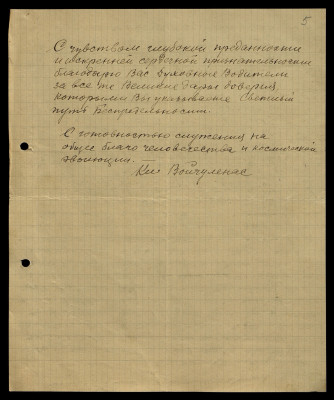 5
С чувством глубокой преданности
и искренней сердечной признательности
благодарю Вас духовное Водители
за все те Великие дары доверия,
которыми Вы указываете Светлый
путь Беспредельности.
С готовностью служения на
общее благо человечества и космической
эволюции. —
Войчуленас